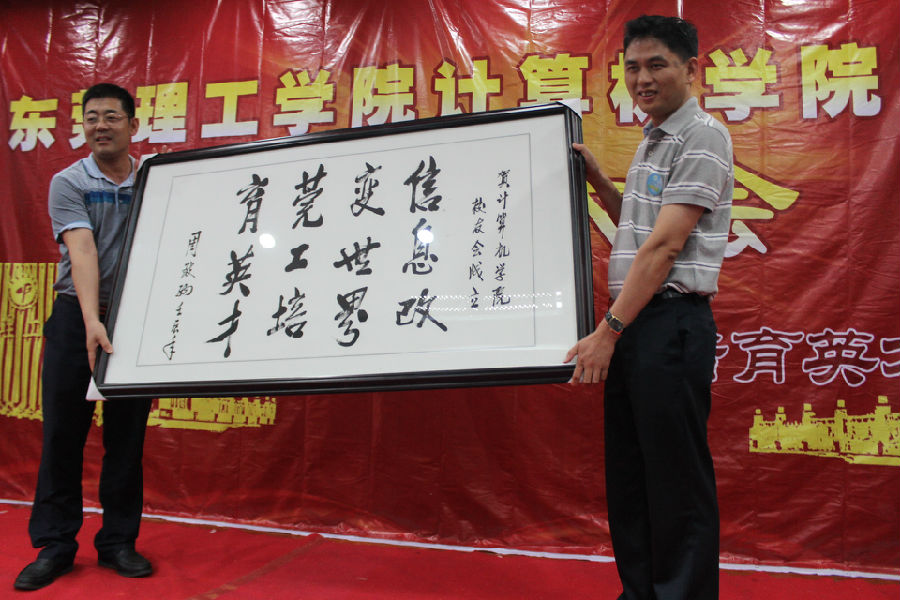 东莞理工学院计算机学院
会
育英才
贺计算机学院
校友会成立
信息改
变世界
莞工培
育英才